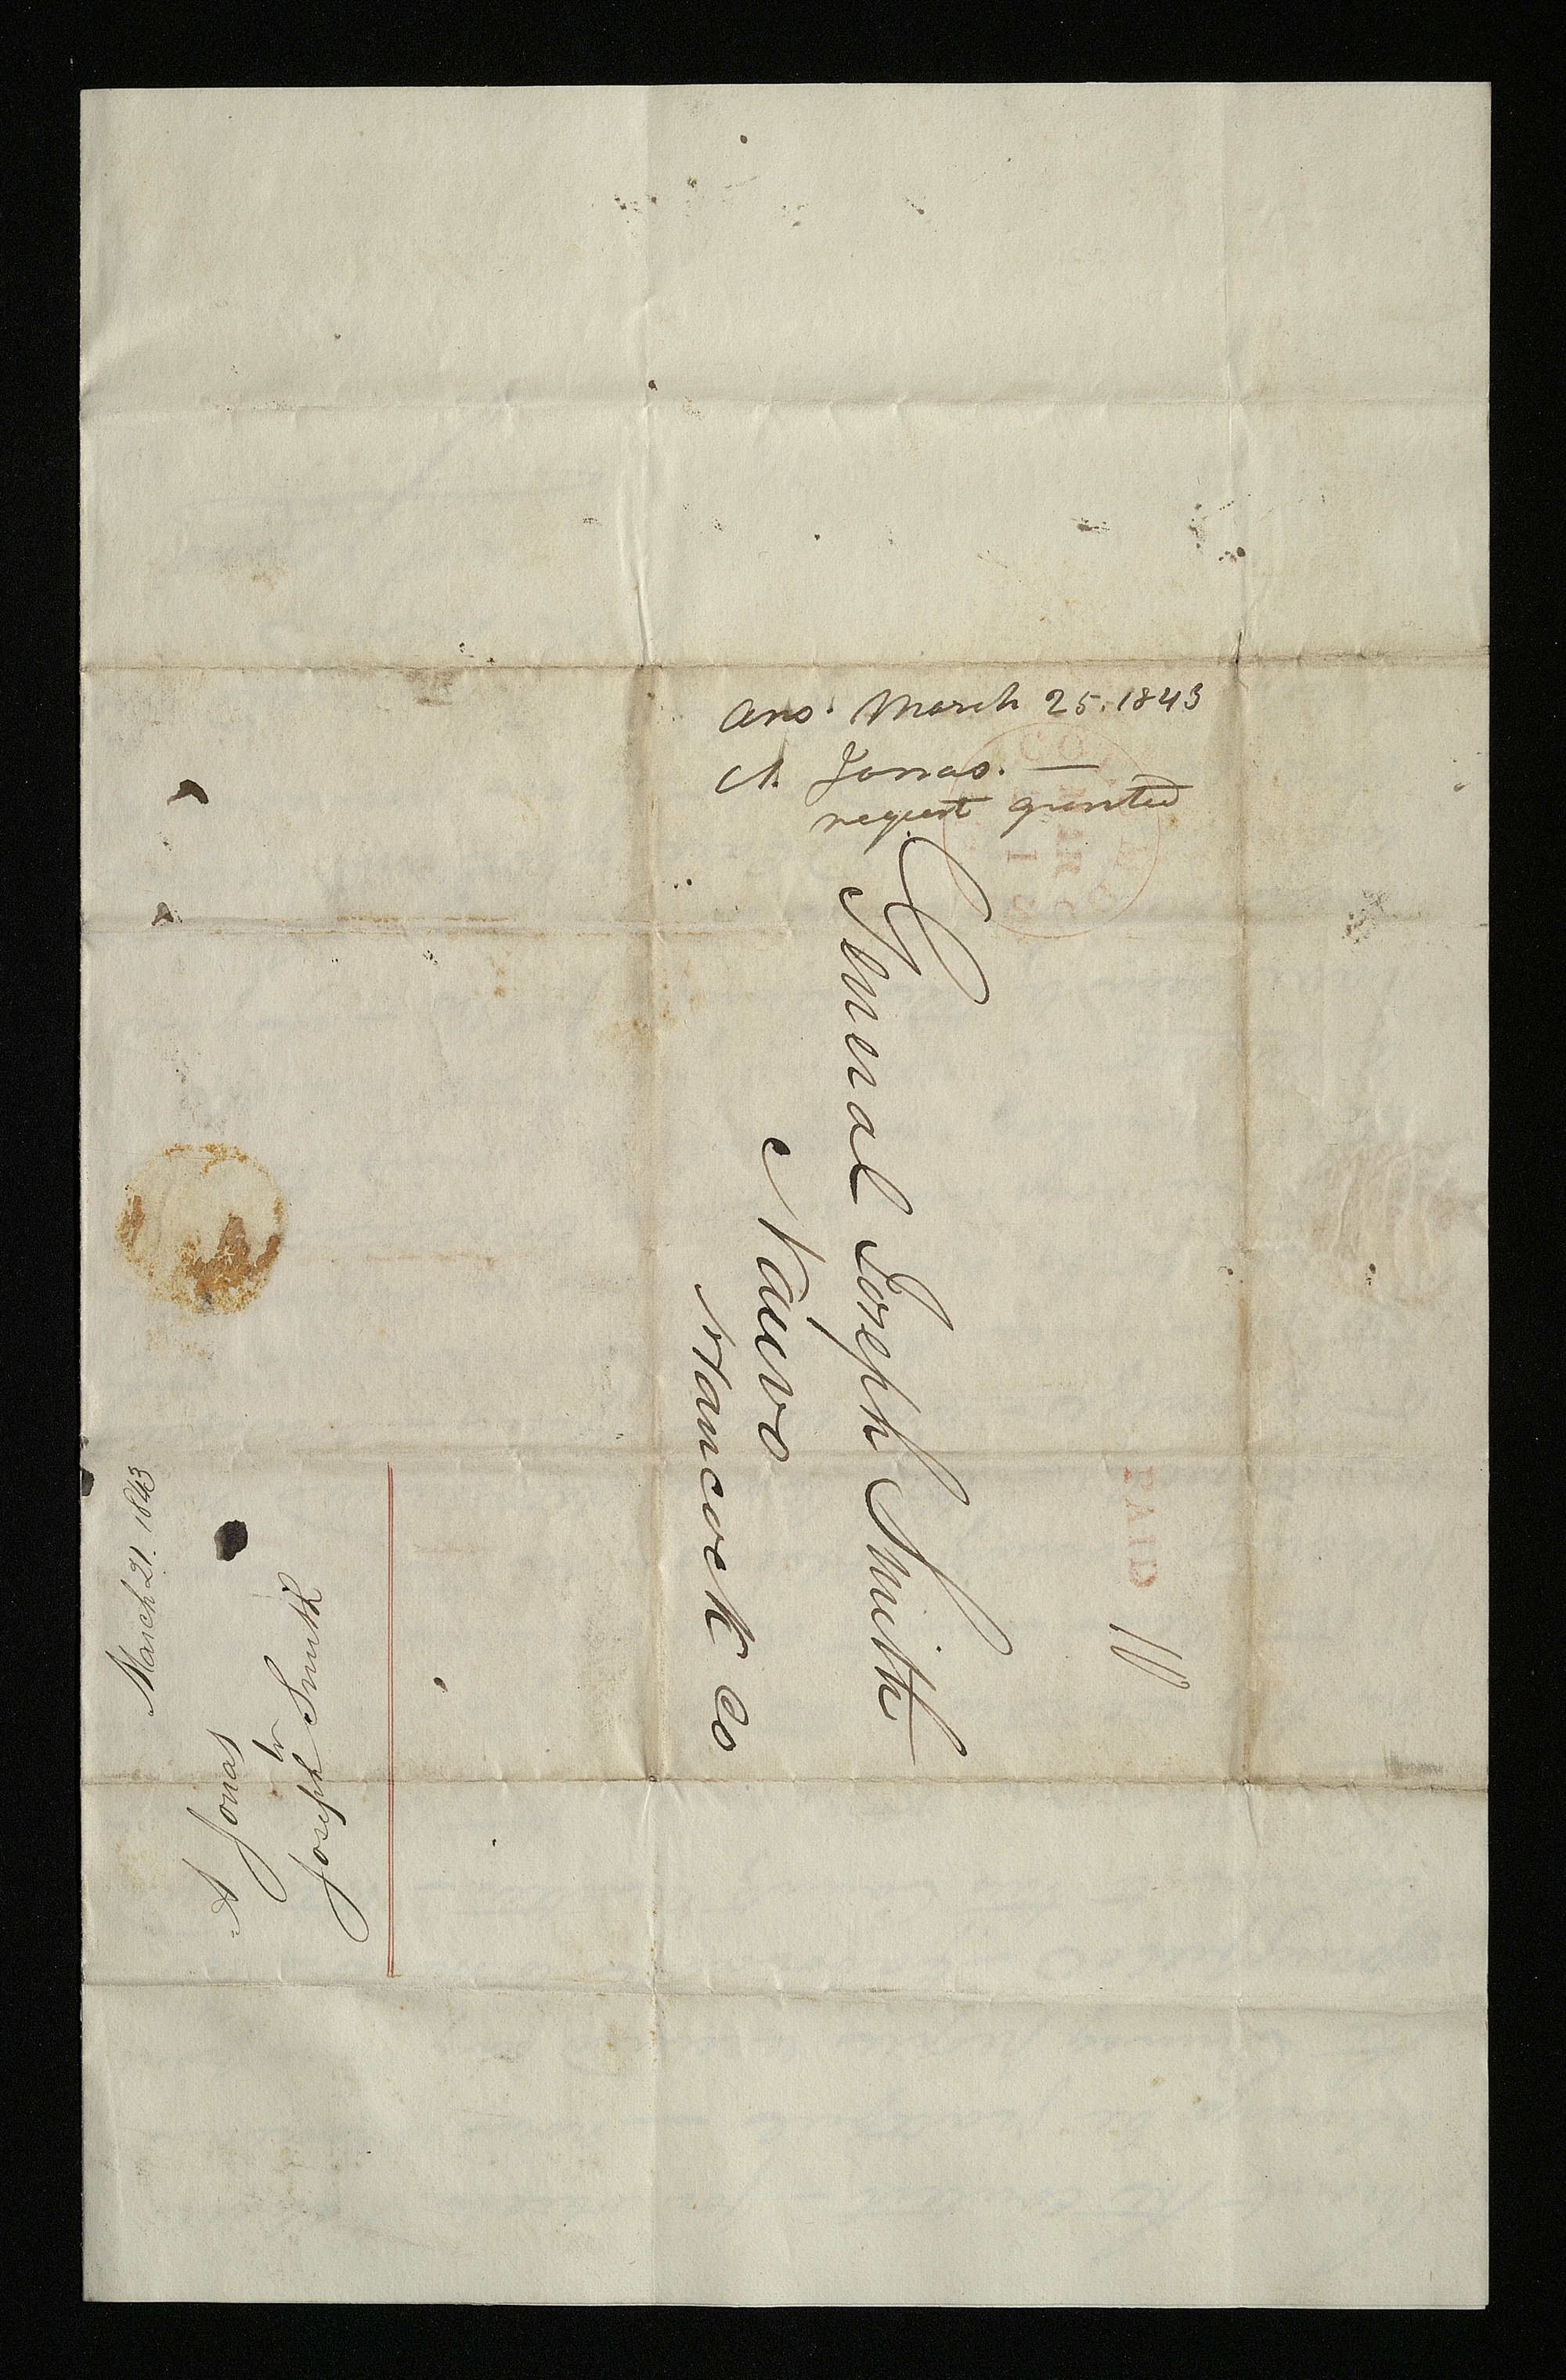 Ans. March 25. 1843
A. Jonas. —
request granted
General Joseph Smith
Nauvo
Hancock Co
PAID
March 21. 1843
A Jonas
to
Joseph Smith